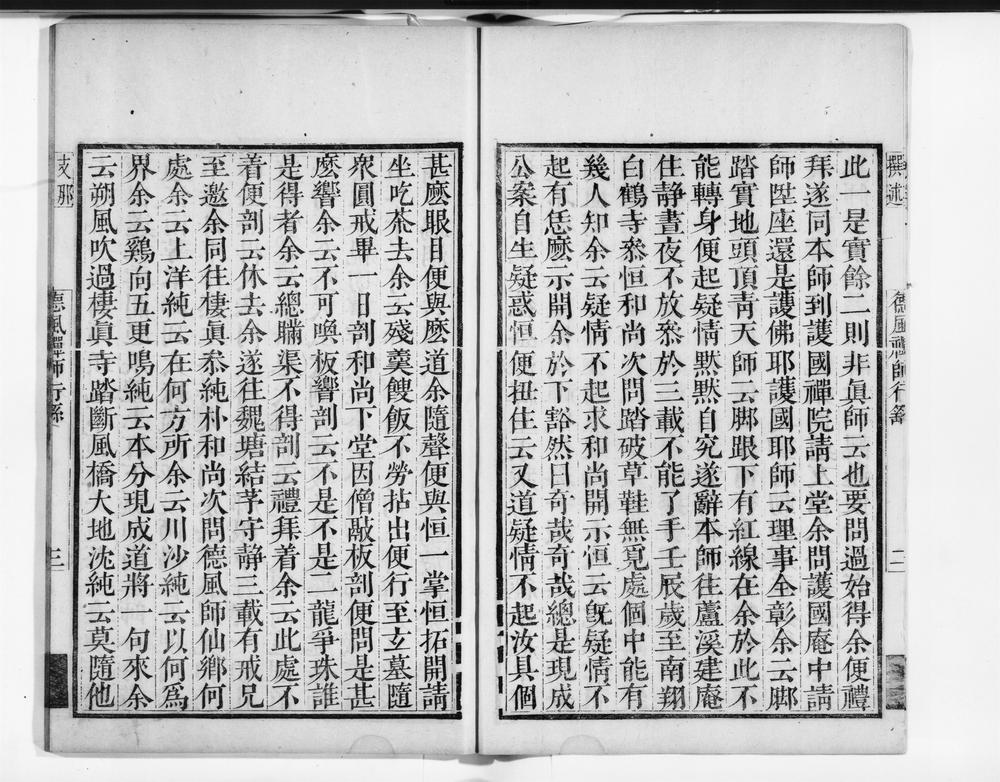 撰述
德風禪師行繇
二
此一是實餘二則非眞師云也要問過始得余便禮
拜遂同本師到護國禪院請上堂余問護國庵中請
師陞座還是護佛耶護國耶師云理事全彰余云脚
踏實地頭頂靑天師云脚跟下有紅線在余於此不
能轉身便起疑情默默自究遂辭本師往蘆溪建庵
住静晝夜不放叅於三載不能了手壬辰歲至南翔
白鶴寺叅恒和尚次問踏破草鞋無覓處個中能有
幾人知余云疑情不起求和尚開示恒云旣疑情不
起有恁麽示開余於下豁然曰奇哉奇哉總是現成
公案自生疑惑恒便扭住云又道疑情不起汝具個
甚麽眼目便與麽道余隨聲便與恒一掌恒拓開請
坐吃茶去余云殘羮餿飯不勞拈出便行至玄墓隨
衆圓戒畢一日剖和尚下堂因僧敲板剖便問是甚
麽響余云不可喚板響剖云不是不是二龍爭珠誰
是得者余云總瞞渠不得剖云禮拜着余云此處不
着便剖云休去余遂往魏塘結茅守静三載有戒兄
至邀余同往棲眞叅純朴和尚次問德風師仙鄉何
處余云上洋純云在何方所余云川沙純云以何爲
界余云鷄向五更鳴純云本分現成道將一句來余
云朔風吹過棲眞寺踏斷風橋大地沈純云莫隨他
支那
德風禪師行繇
三